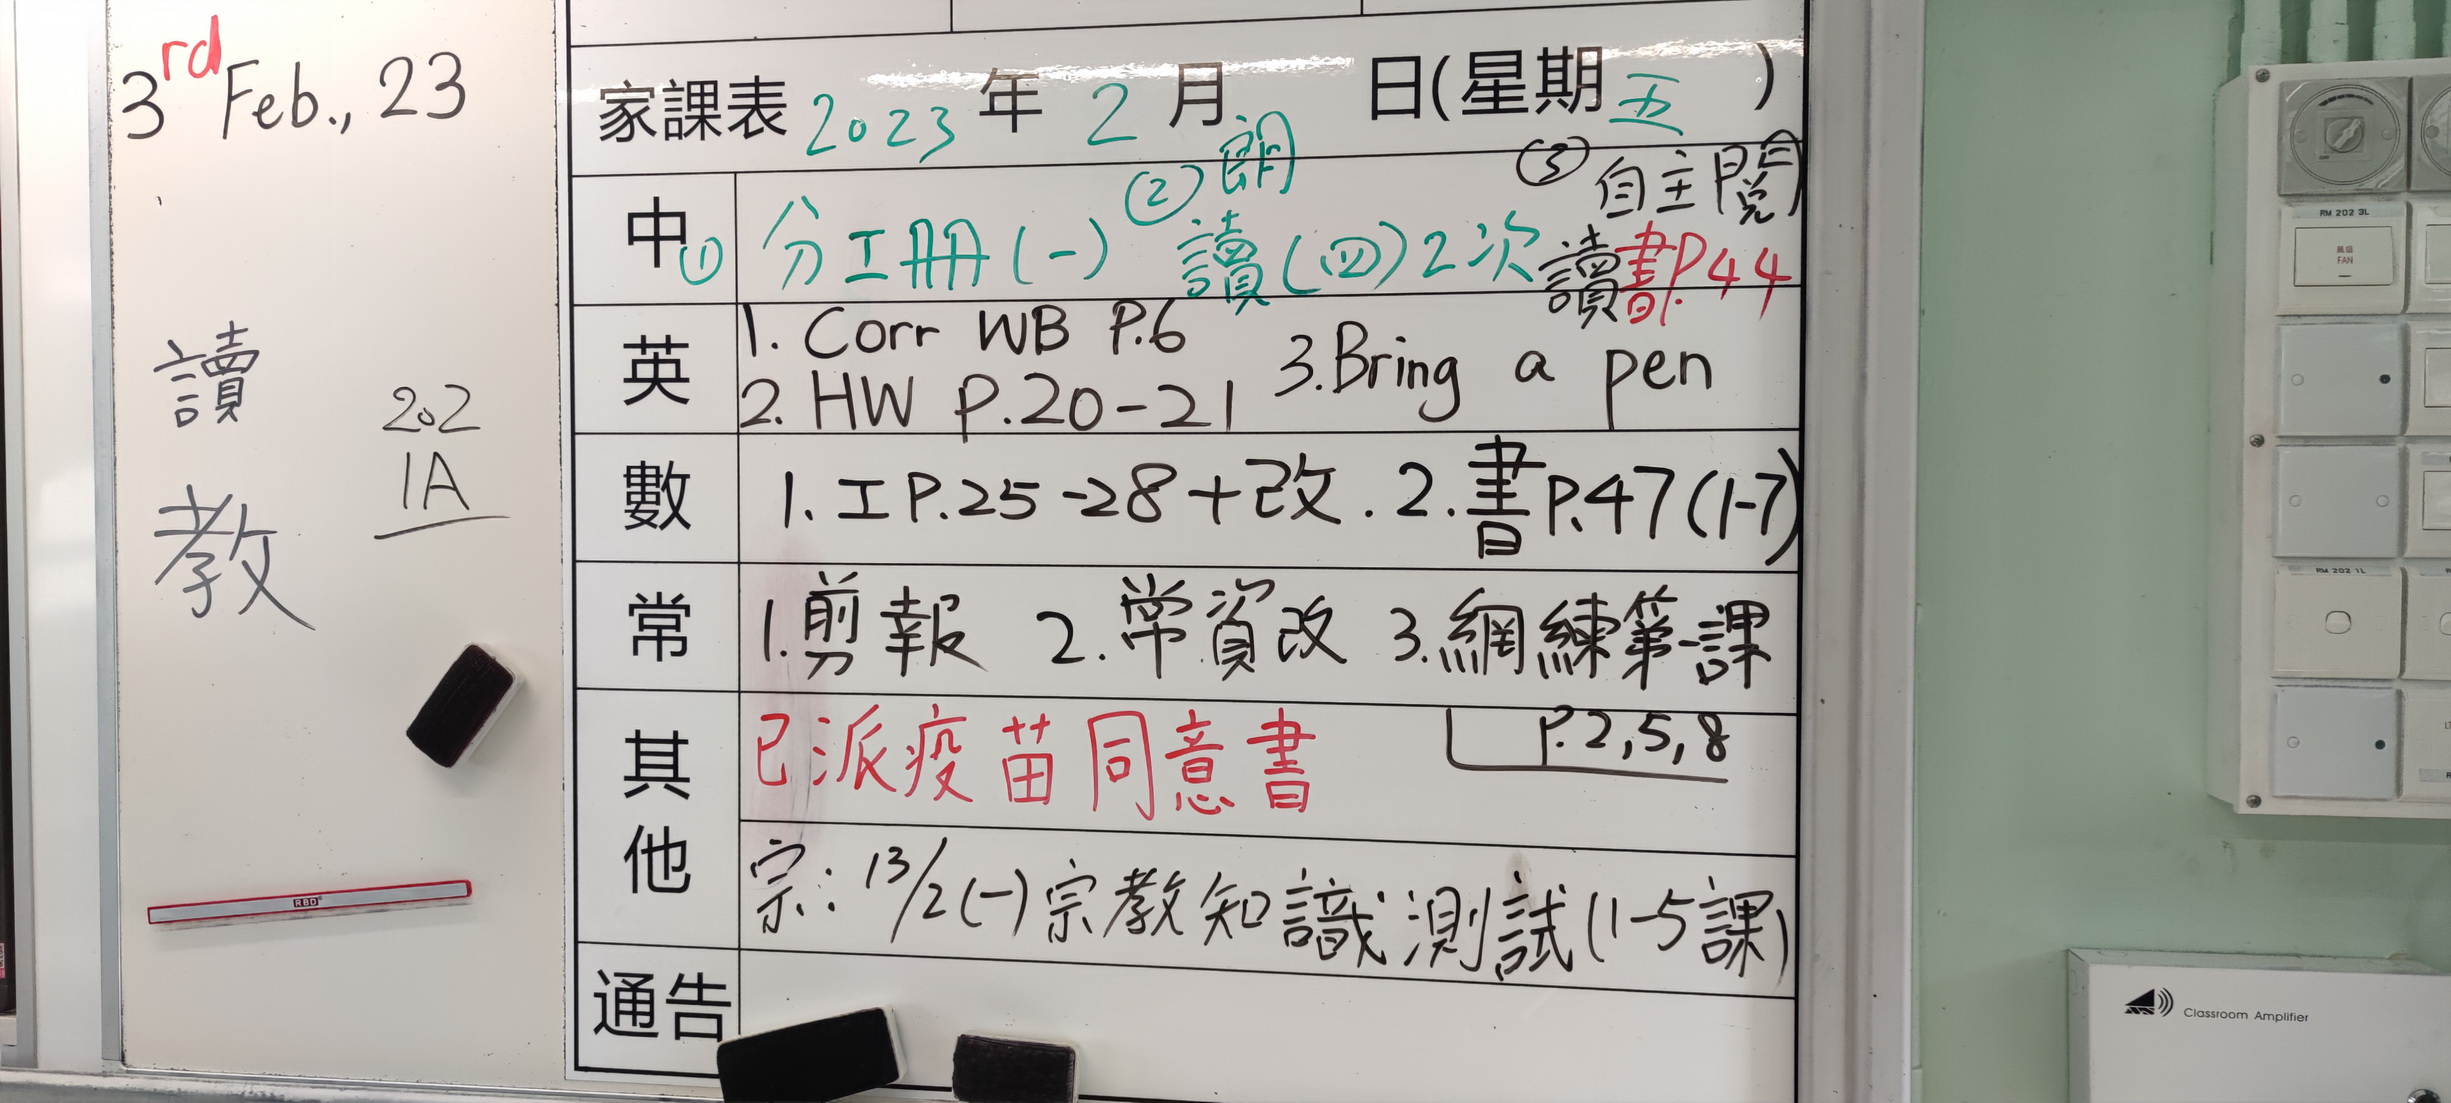 3rd Feb., 23
讀
教
202
1A
家課表 2023 年 2 月 日(星期 五 )
中 ① 分工冊(一) ② 朗讀(四)2次 ③ 自主閱讀書P.44
英 1. Corr WB P.6
2. HW P.20-21 3. Bring a pen
數 1. 工P.25-28+改. 2. 書P.47(1-7)
常 1. 剪報 2. 常資改 3. 網練第一課
P.2,5,8
其他 已派疫苗同意書
宗: 13/2(一)宗教知識測試(1-5課)
通告
RBD
RM 202 3L
風扇
FAN
RM 202 1L
Classroom Amplifier